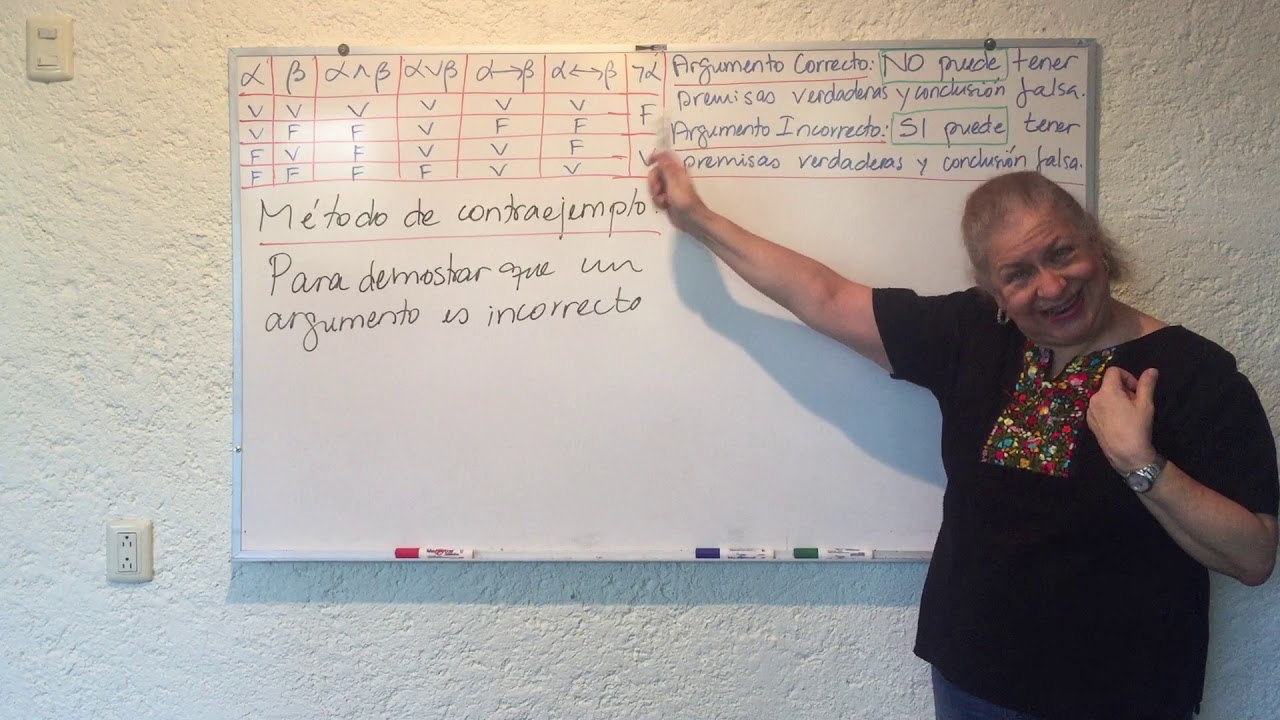 α β α∧β α∨β α→β α↔β ¬α
V V V V V V F
V F F V F F
F V F V V F V
F F F F V V
Argumento Correcto: NO puede tener
premisas verdaderas y conclusión falsa.
Argumento Incorrecto: SI puede tener
premisas verdaderas y conclusión falsa.
Método de contraejemplo.
Para demostrar que un
argumento es incorrecto